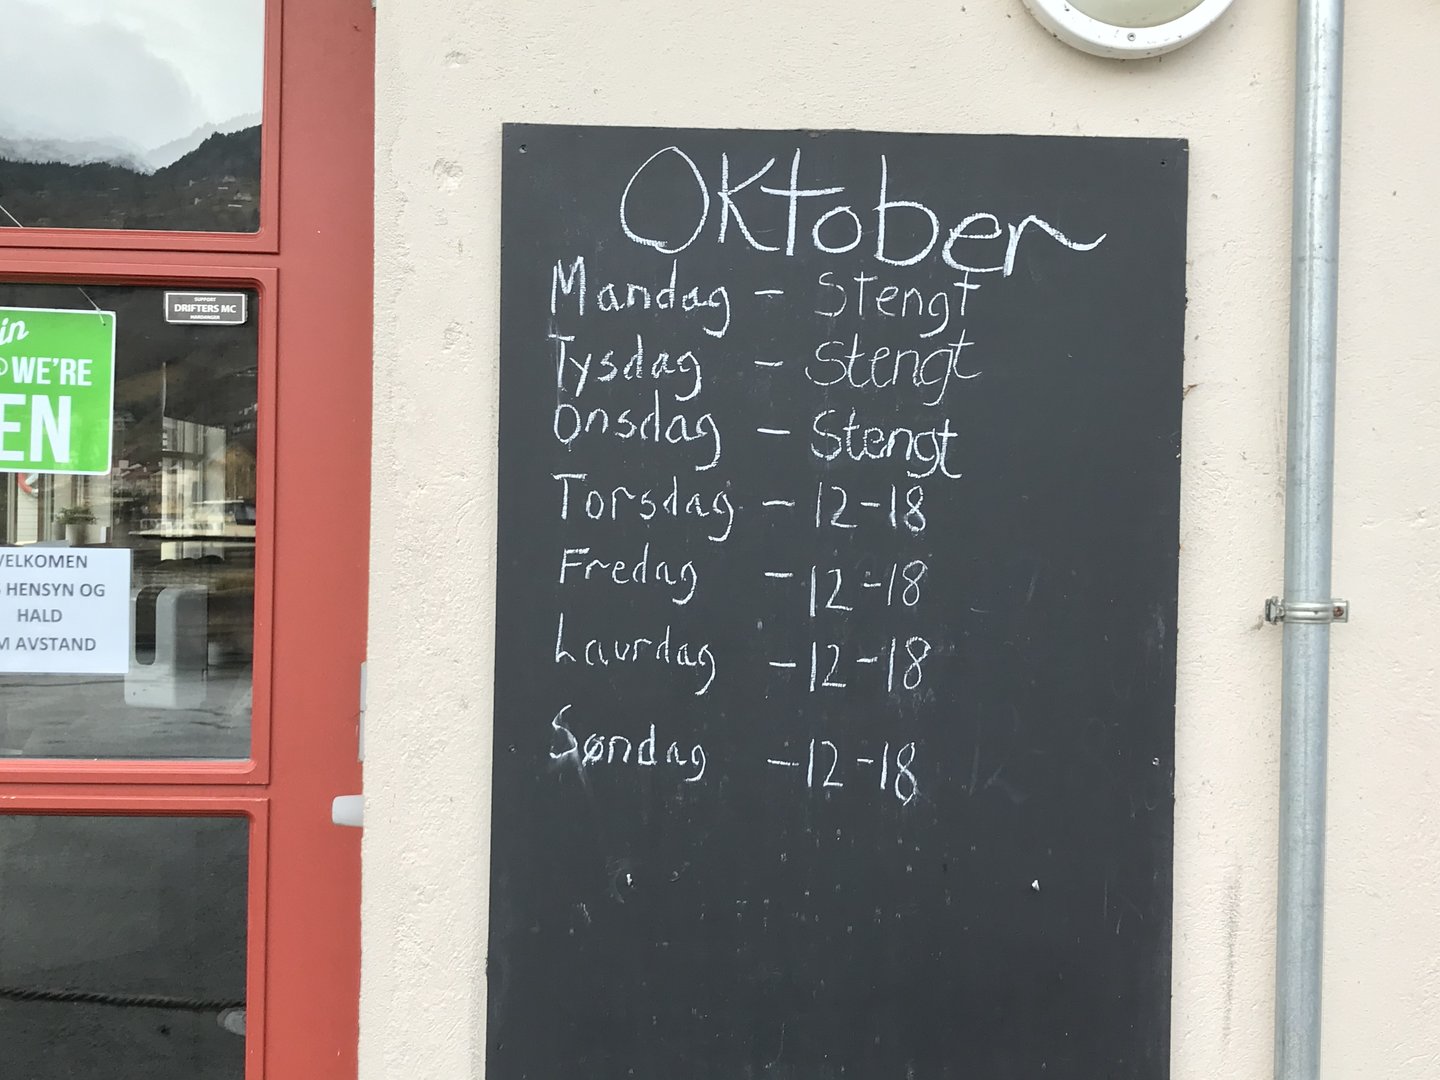 in
WE'RE
EN
SUPPORT
DRIFTERS MC
HARDANGER
VELKOMEN
HENSYN OG
HALD
M AVSTAND
Oktober
Mandag - Stengt
Tysdag - Stengt
Onsdag - Stengt
Torsdag - 12-18
Fredag - 12-18
Laurdag - 12-18
Søndag - 12-18